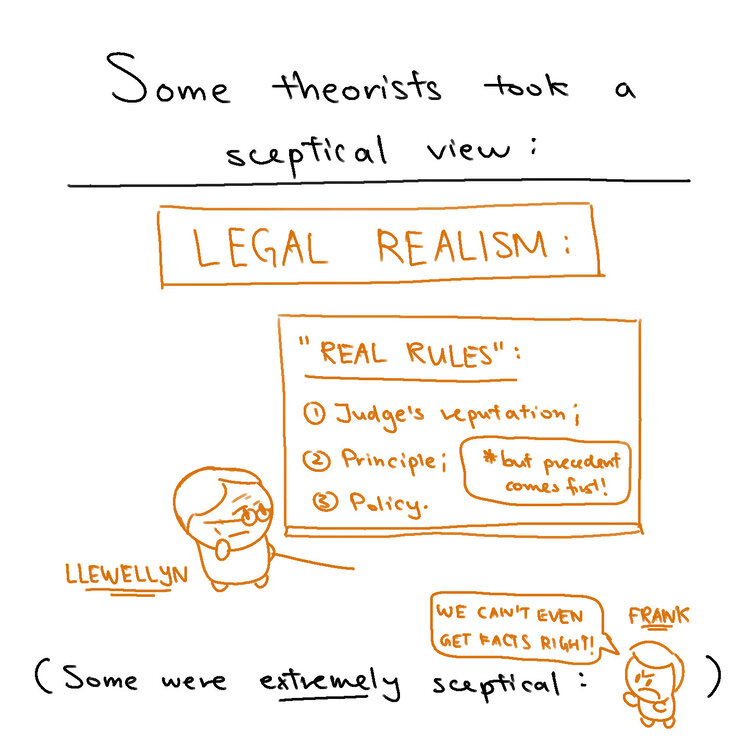 Some theorists took a
sceptical view:
LEGAL REALISM:
"REAL RULES":
① Judge's reputation;
② Principle;
*but precedent
comes first!
③ Policy.
LLEWELLYN
WE CAN'T EVEN
GET FACTS RIGHT!
FRANK
(Some were extremely sceptical: )